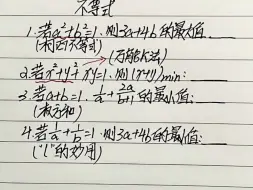 不等式
1.若a²+b²=1.则3a+4b的最大值.____
(柯西不等式)
(万能k法)
2.若x²+y²+xy=1.则(x+y)min:____
3.若a+b=1.1/a+2a/(b+1)的最小值:____
(权方和)
4.若1/a+1/b=1.则3a+4b的最小值:____
("1"的妙用)